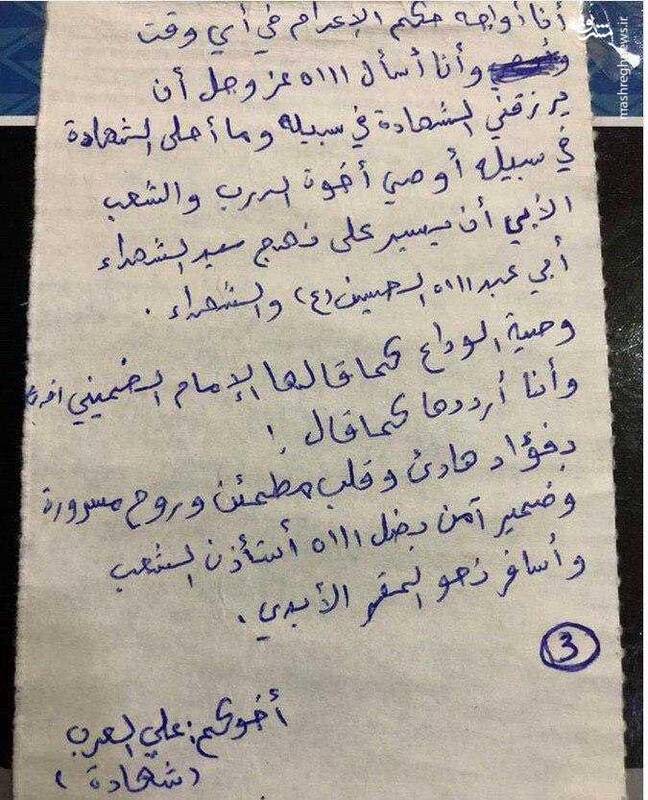 أنا أواجه حكم الإعدام في أي وقت
وأنا أسأل ااااه عز وجل أن
يرزقني الشهادة في سبيله وما أحلى الشهادة
في سبيله أوصي أخوة الدرب والشعب
الأبي أن يسير على نهج سيد الشهداء
أبي عبد ااااه الحسين (ع) والشهداء .
وصية الوداع كما قالها الإمام الخميني
وأنا أرددها كما قال :
بفؤاد هادئ وقلب مطمئن وروح مسرورة
وضمير آمن بضل ااااه أستأذن الشعب
وأسافر نحو المقر الأبدي .
3
أخوكم : علي العرب
(شهادة)
mashreghnews.ir